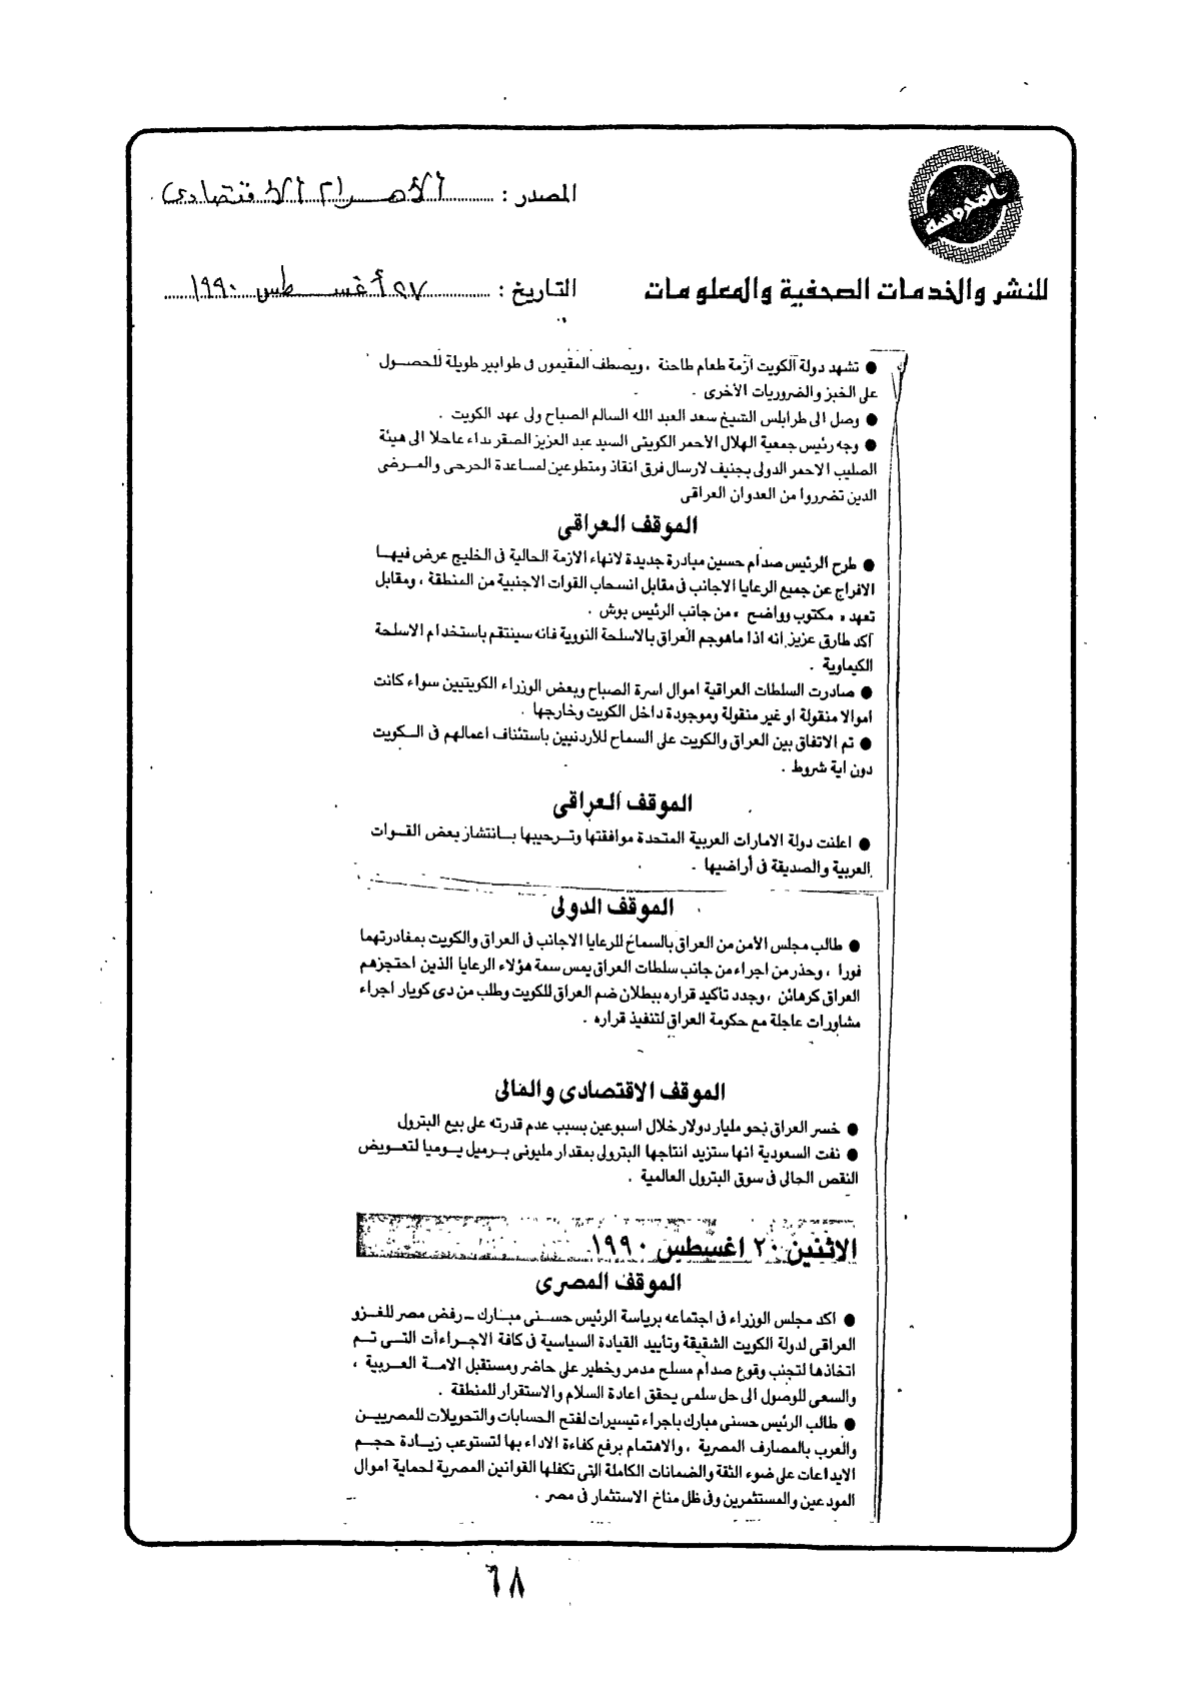 بالهدوسة
المصدر : الأهرام الاقتصادى
للنشر والخدمات الصحفية والمعلومات
التاريخ : ٢٧ أغسطس ١٩٩٠
● تشهد دولة الكويت أزمة طعام طاحنة ، ويصطف المقيمون فى طوابير طويلة للحصول
على الخبز والضروريات الأخرى .
● وصل الى طرابلس الشيخ سعد العبد الله السالم الصباح ولى عهد الكويت .
● وجه رئيس جمعية الهلال الأحمر الكويتى السيد عبد العزيز الصقر نداء عاجلا الى هيئة
الصليب الاحمر الدولى بجنيف لارسال فرق انقاذ ومتطوعين لمساعدة الجرحى والمرضى
الذين تضرروا من العدوان العراقى
الموقف العراقى
● طرح الرئيس صدام حسين مبادرة جديدة لانهاء الازمة الحالية فى الخليج عرض فيها
الافراج عن جميع الرعايا الاجانب فى مقابل انسحاب القوات الاجنبية من المنطقة ، ومقابل
تعهد « مكتوب وواضح » من جانب الرئيس بوش .
أكد طارق عزيز انه اذا ماهوجم العراق بالاسلحة النووية فانه سينتقم باستخدام الاسلحة
الكيماوية .
● صادرت السلطات العراقية اموال اسرة الصباح وبعض الوزراء الكويتيين سواء كانت
اموالا منقولة او غير منقولة وموجودة داخل الكويت وخارجها .
● تم الاتفاق بين العراق والكويت على السماح للأردنيين باستئناف اعمالهم فى الكويت
دون اية شروط .
الموقف العراقى
● اعلنت دولة الامارات العربية المتحدة موافقتها وترحيبها بانتشار بعض القوات
العربية والصديقة فى أراضيها .
الموقف الدولى
● طالب مجلس الأمن من العراق بالسماح للرعايا الاجانب فى العراق والكويت بمغادرتهما
فورا ، وحذر من اجراء من جانب سلطات العراق يمس سمة هؤلاء الرعايا الذين احتجزهم
العراق كرهائن ، وجدد تأكيد قراره ببطلان ضم العراق للكويت وطلب من دى كويار اجراء
مشاورات عاجلة مع حكومة العراق لتنفيذ قراره .
الموقف الاقتصادى والمالى
● خسر العراق نحو مليار دولار خلال اسبوعين بسبب عدم قدرته على بيع البترول
● نفت السعودية انها ستزيد انتاجها البترولى بمقدار مليونى برميل يوميا لتعويض
النقص الحالى فى سوق البترول العالمية .
الاثنين ٢٠ اغسطس ١٩٩٠
الموقف المصرى
● اكد مجلس الوزراء فى اجتماعه برياسة الرئيس حسنى مبارك – رفض مصر للغزو
العراقى لدولة الكويت الشقيقة وتأييد القيادة السياسية فى كافة الاجراءات التى تم
اتخاذها لتجنب وقوع صدام مسلح مدمر وخطير على حاضر ومستقبل الامة العربية ،
والسعى للوصول الى حل سلمى يحقق اعادة السلام والاستقرار للمنطقة .
● طالب الرئيس حسنى مبارك باجراء تيسيرات لفتح الحسابات والتحويلات للمصريين
والعرب بالمصارف المصرية ، والاهتمام برفع كفاءة الاداء بها لتستوعب زيادة حجم
الايداعات على ضوء الثقة والضمانات الكاملة التى تكفلها القوانين المصرية لحماية اموال
المودعين والمستثمرين وفى ظل مناخ الاستثمار فى مصر .
٦٨